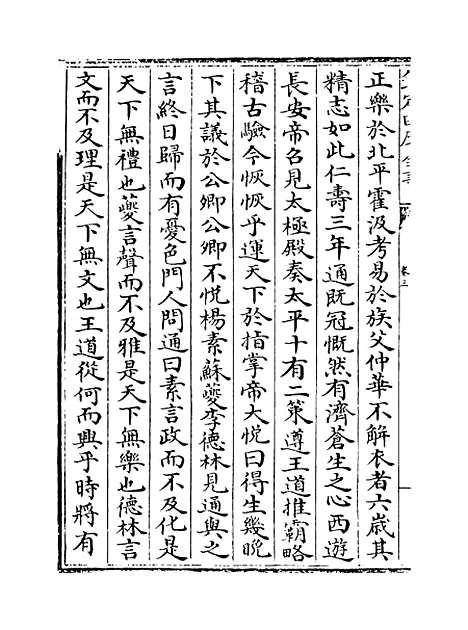 正樂於北平霍汲考易於族父仲華不解衣者六歲其
精志如此仁壽三年通既冠慨然有濟蒼生之心西遊
長安帝名見太極殿奏太平十有二策遵王道推霸略
稽古驗今恢恢乎運天下於指掌帝大悅曰得生幾晚
下其議於公卿公卿不悅楊素蘇夔李德林見通與之
言終日歸而有憂色門人問通曰素言政而不及化是
天下無禮也夔言聲而不及雅是天下無樂也德林言
文而不及理是天下無文也王道從何而興乎時將有
卷三